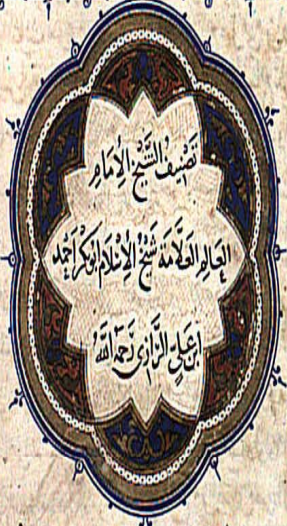 تصنيف الشيخ الإمام
العالم العلامة شيخ الإسلام أبو بكر أحمد
ابن علي الرازي رحمه الله